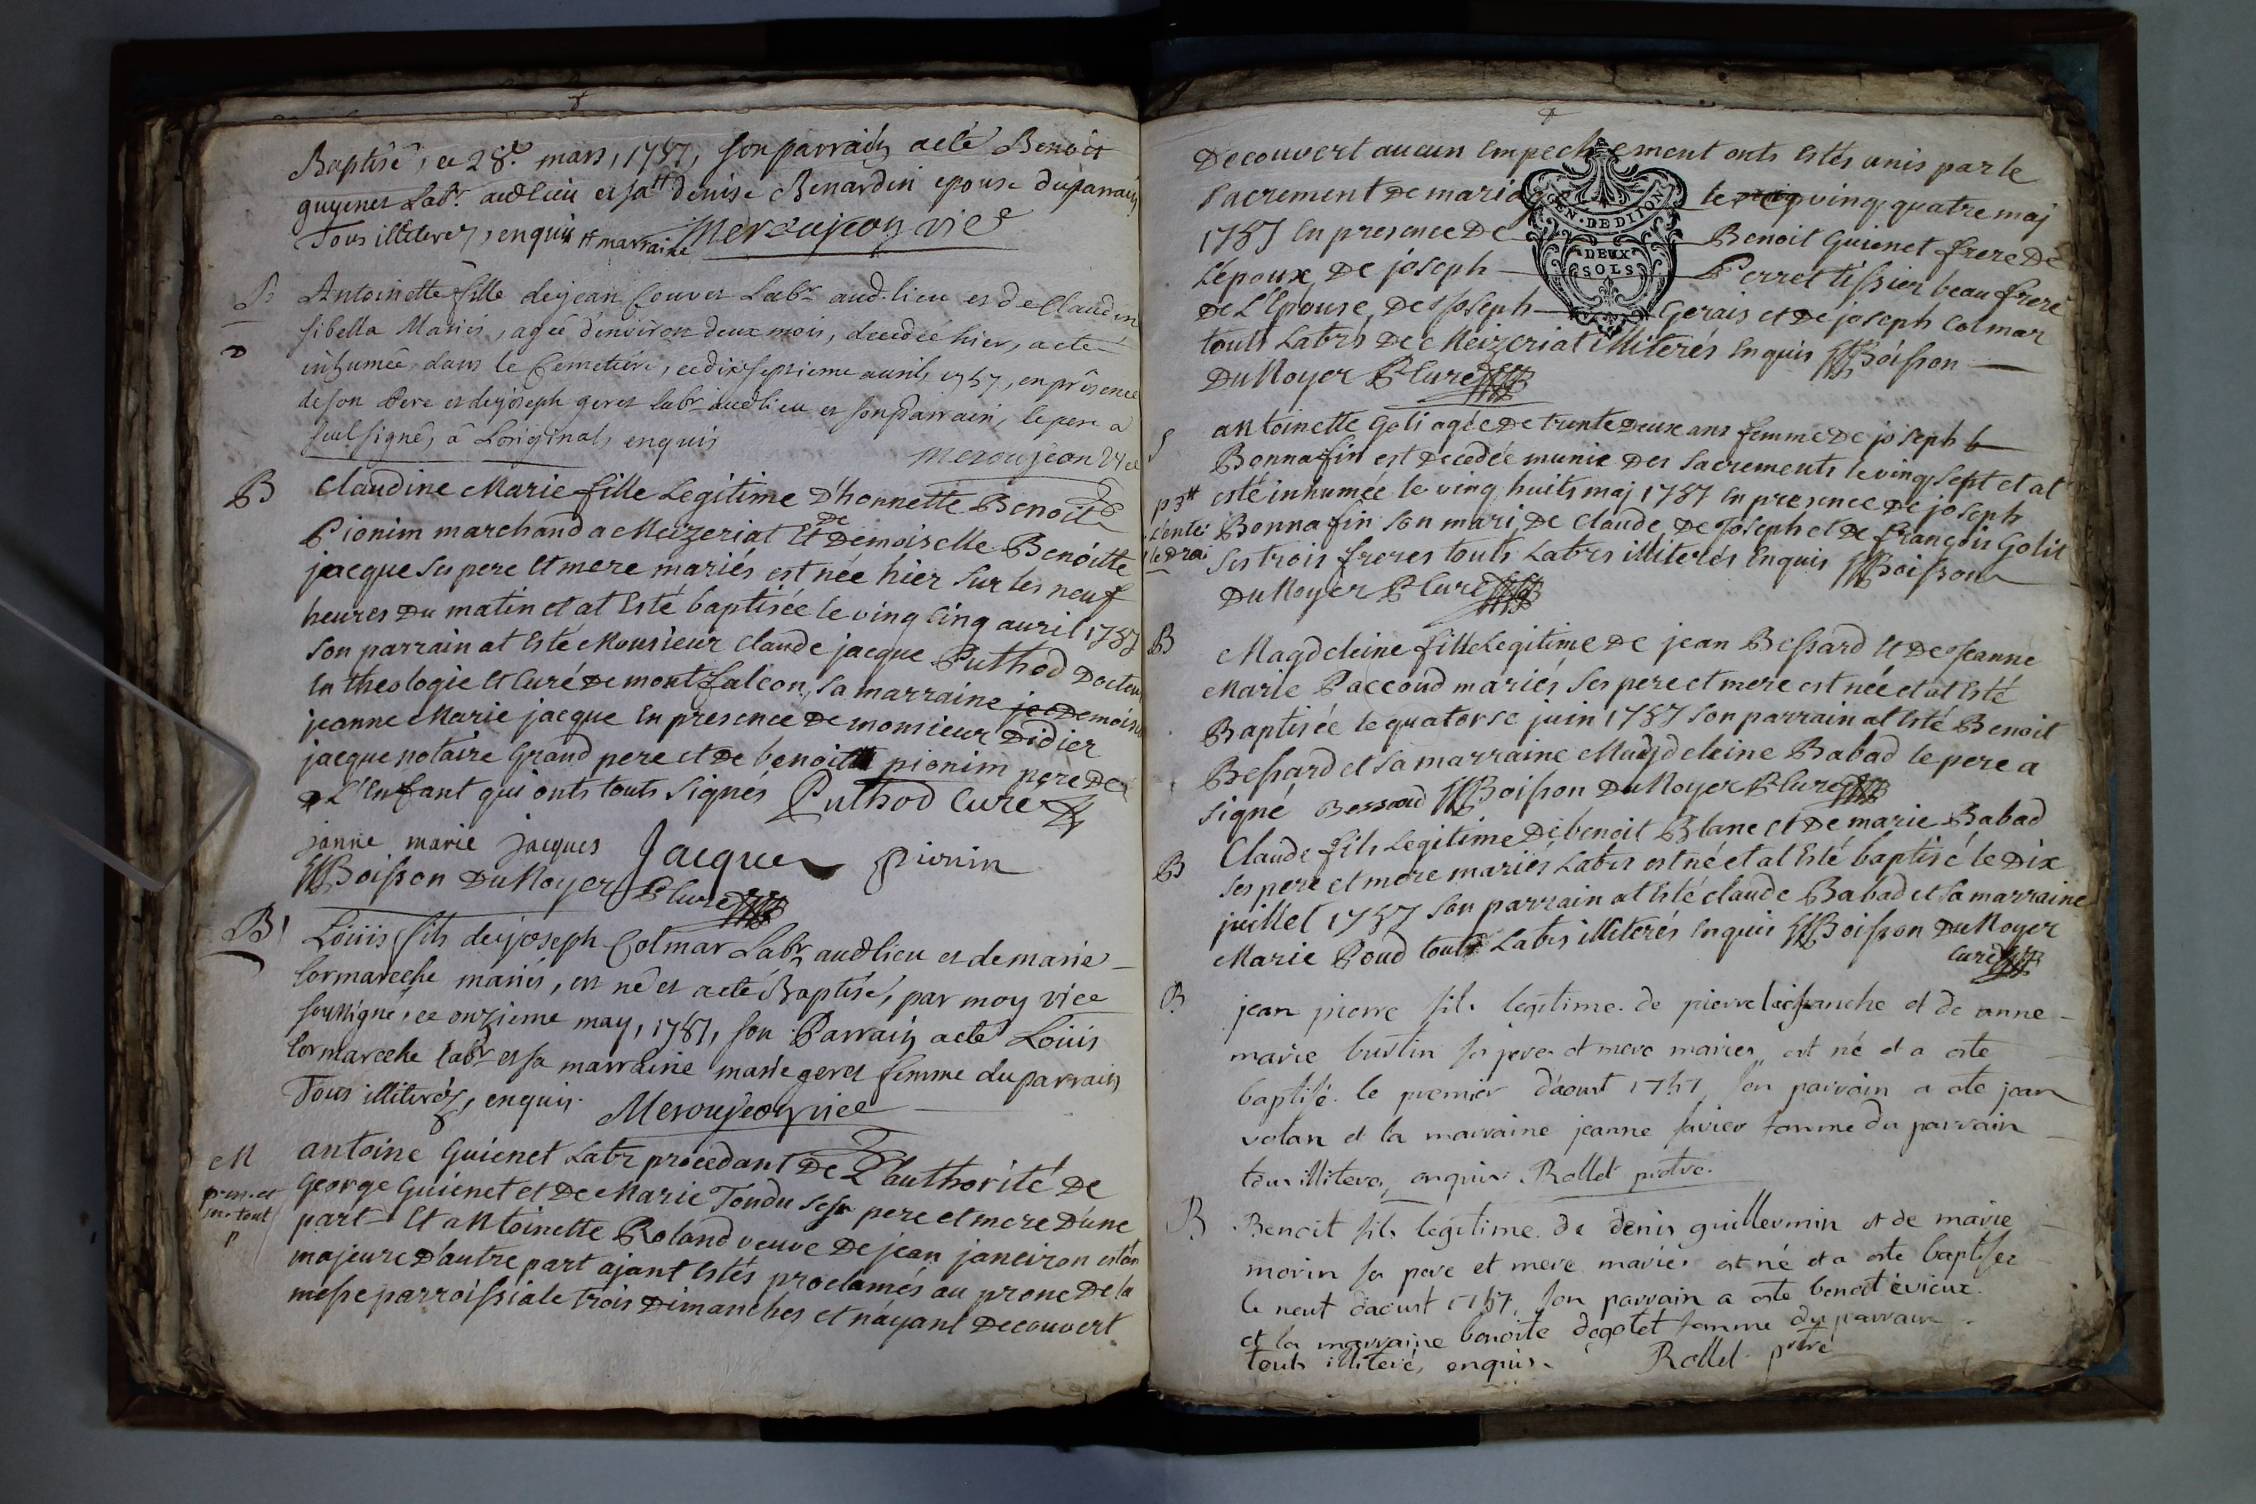 Baptisé, ce 28e mars, 1757, son parrain a eté Benoit
guyenet Labr. audlieu et sa # denise Benardin epouse du parrain
Tous illiterez, enquis # marraine Meroujeon vice
S Antoinette fille de jean Couvet Labr aud. lieu et de Claudine
Sibella Mariés, agée d'environ deux mois, decedée hier, a eté
inhumée dans le Cemetière, ce dixseptieme avril, 1757, en présence
de son Pere et de joseph geret labr audlieu et son Parrain, le pere a
seul signé, â Loriginal, enquis
Meroujeon Vice
B Claudine Marie fille Legitime D'honnette Benoit
Pionim marchand a Meizeriat Et de Demoiselle Benoitte
jacque ses pere Et mere mariés est née hier sur les neuf
heures du matin et at Esté baptisée le ving cinq auril 1757
son parrain at Esté Monsieur Claude jacque Puthod Docteur
En theologie et Curé de montfalcon, sa marraine Demoiselle
jeanne Marie jacque En presence De monsieur Didier
jacque notaire grand pere et De benoit pionim pere De
L'Enfant qui onts touts signés Puthod Curé
janne marie jacques Jacque Pionin
Boisson DuNoyer P Curé
B Loüis fils de joseph Colmar Labr, audlieu et de marie
Cormareche mariés, est né et a eté Baptisé, par moy vice
soussigné, ce onzieme may, 1757, son Parrain a eté Loüis
Cormareche labr et sa marraine marie geret femme du parrain
Tous illiterez, enquis. Meroujeon vice
M antoine Guienet Labr procedant De L'authorité De
George Guienet et De Marie Tondu ses pere et mere D'une
part Et antoinette Roland veuve De jean janeiron
majeure D'autre part ajant Estés proclamés au prone De la
messe parroissiale trois Dimanches et n'ayant Decouvert
Decouvert aucun Empechement onts Estés unis par le
sacrement De mariage le ving quatre maj
GEN. DE DIJON
1757 En presence De Benoit Guienet frere De
DEUX SOLS
L'epoux, De joseph Perret tissier beau frere
De L'Epouse, De Joseph Gerais et De joseph Colmar
touts Labrs De Meizeriat illiterés Enquis Boisson
DuNoyer P Curé
S antoinette Goli agée De trente Deux ans femme De joseph
Bonnafin est Decedée munie Des sacrements le ving sept et at
p 3#
esté inhumée le ving huits maj 1757 En presence De joseph
Bonnafin son mari, De Claude, De Joseph et De françois Golit
ses trois freres touts Labrs illiterés Enquis Boisson
DuNoyer P Curé
B Magdeleine fille Legitime De jean Bessard Et De Jeanne
Marie Paccoud mariés ses pere et mere est née et at Esté
Baptisée le quatorse juin 1757 son parrain at Esté Benoit
Bessard et sa marraine Magdeleine Babad le pere a
signé Bessard Boisson DuNoyer P Curé
B Claude fils Legitime De benoit Blanc et De marie Babad
ses pere et mere mariés Labrs est né et at Esté baptisé le Dix
juillet 1757 son parrain at Esté claude Babad et sa marraine
Marie Poud touts Labrs illiterés Enquis Boisson DuNoyer
Curé
B jean pierre fils legitime de pierre et de anne
marie bustin ses pere et mere mariés, est né et a ete
baptisé le premier d'aoust 1757 son parrain a ete jean
volan et la marraine jeanne favier femme du parrain
tous illiteres, enquis. Rollet pretre.
B Benoit fils legitime de denis guillermin et de marie
morin ses pere et mere mariés est né et a ete baptisez
le neuf d'aoust 1757, son parrain a ete benoit évieux
et la marraine benoite degotet femme du parrain
touts illiteré, enquis. Rollet pretre